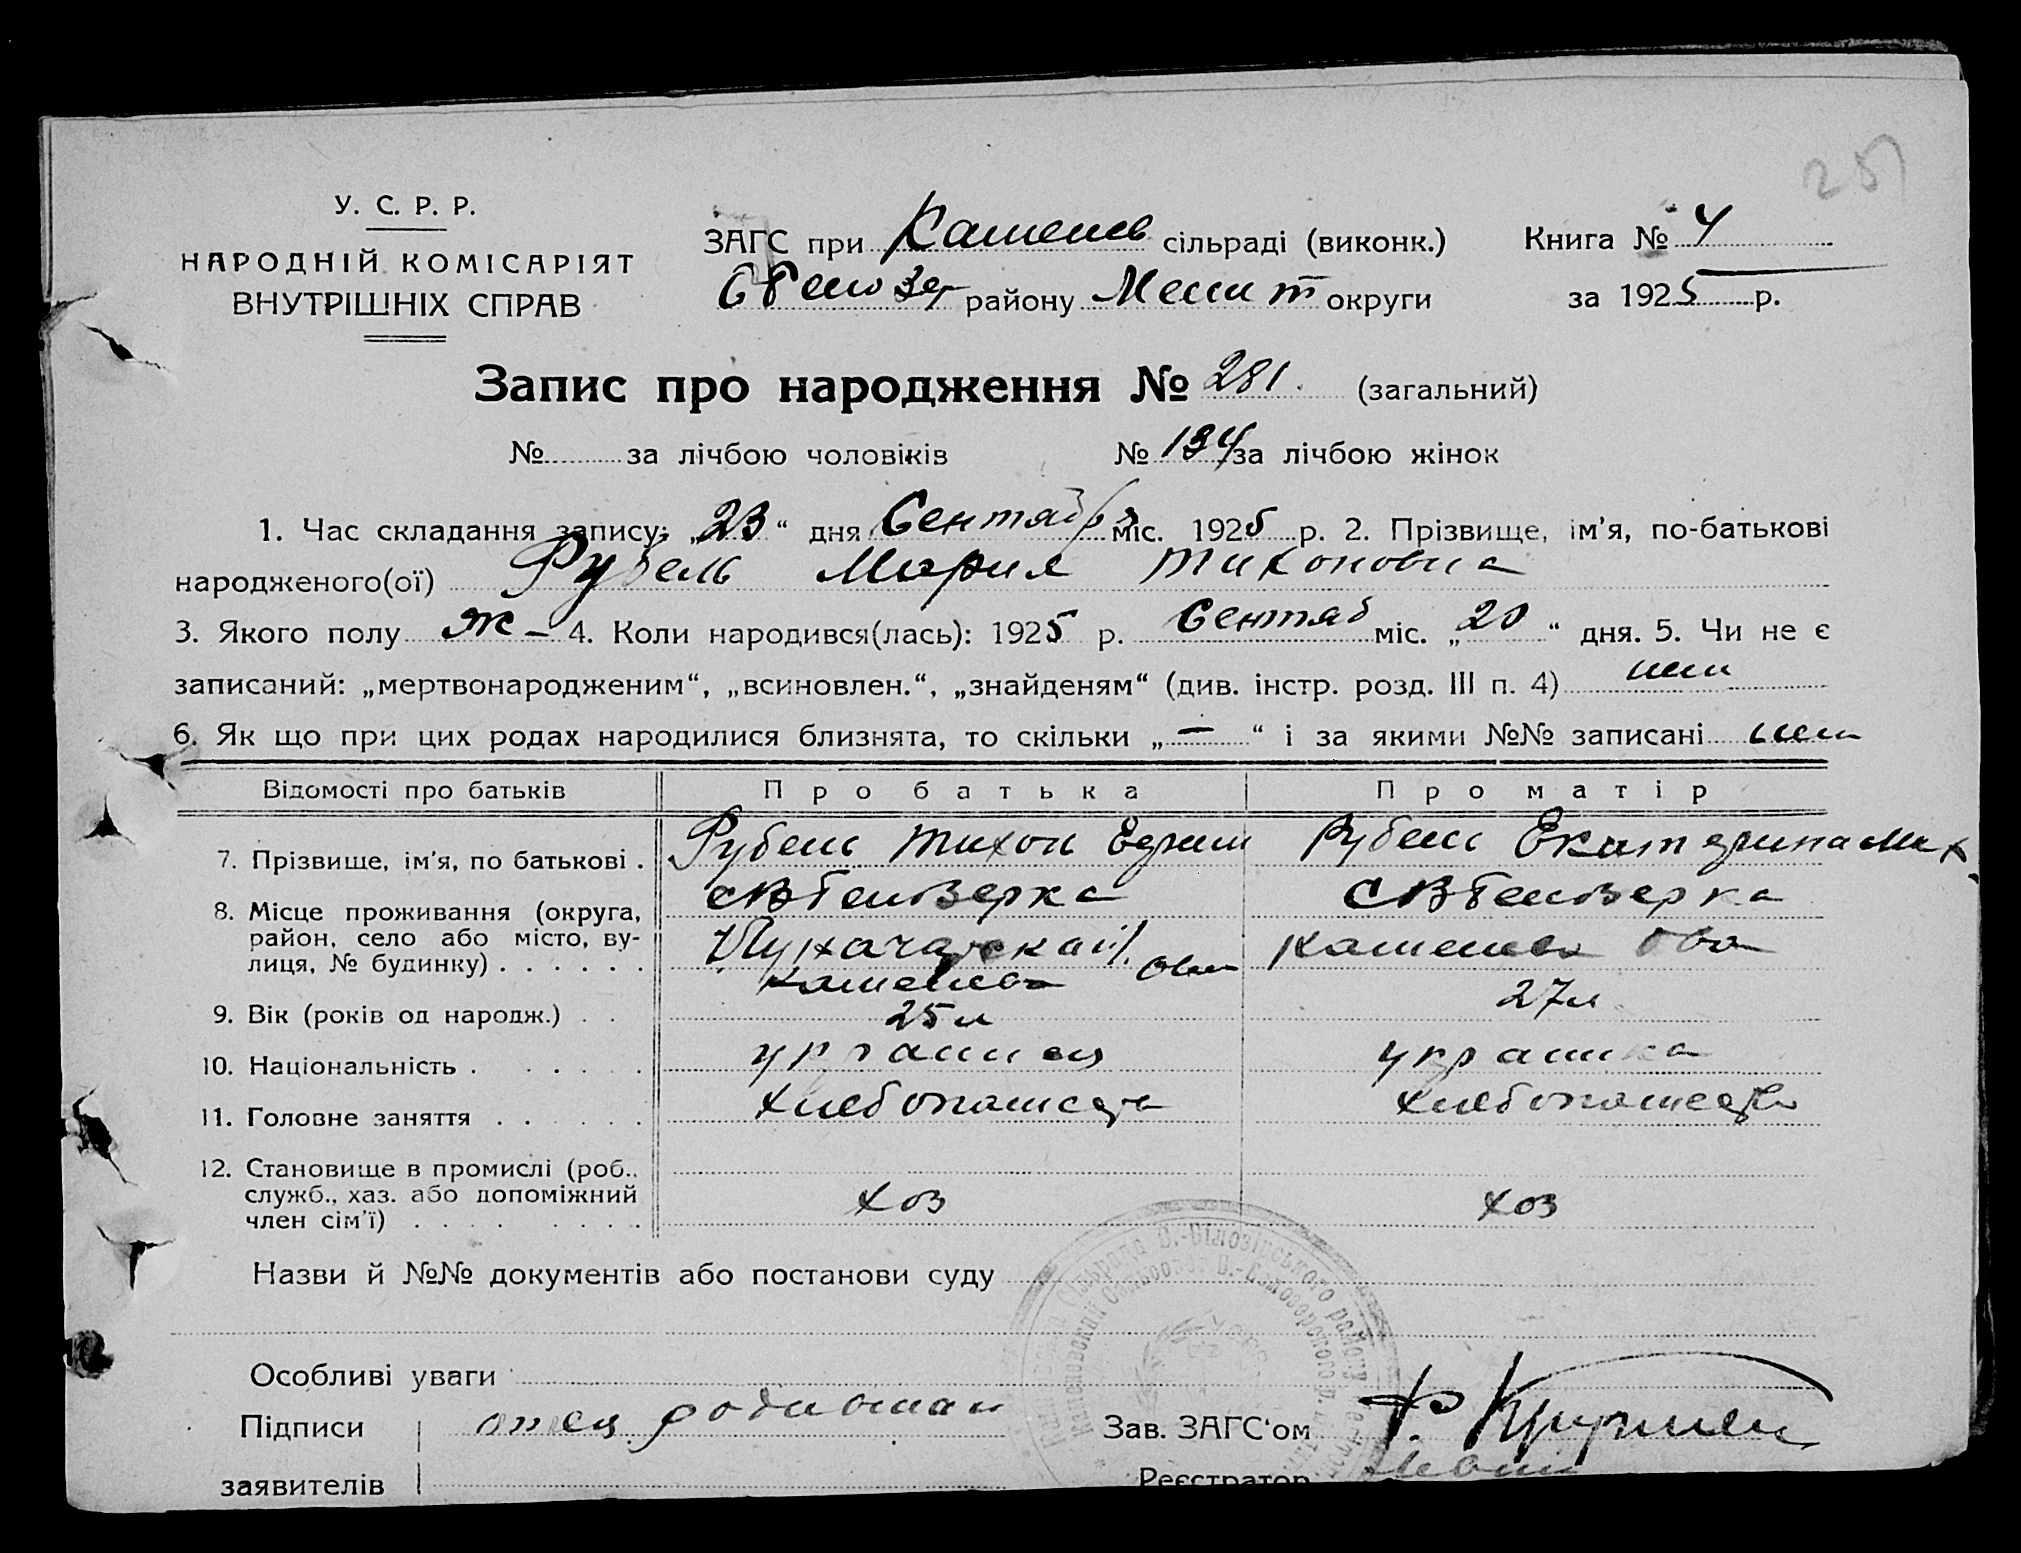 251
У. С. Р. Р.
НАРОДНІЙ КОМІСАРІЯТ
ВНУТРІШНІХ СПРАВ
ЗАГС при Каменев сільраді (виконк.) Книга № 4
району Мелит округи за 1925 р.
Запис про народження № 281. (загальний)
№ за лічбою чоловіків № 134 за лічбою жінок
1. Час складання запису: „23“ дня Сентября міс. 1925 р. 2. Прізвище, ім'я, по-батькові
народженого(ої) Рубель Мария Тихоновна
3. Якого полу Ж – 4. Коли народився(лась): 1925 р. Сентяб міс. „20“ дня. 5. Чи не є
записаний: „мертвонародженим“, „всиновлен.“, „знайденям“ (див. інстр. розд. III п. 4) нет
6. Як що при цих родах народилися близнята, то скільки „–“ і за якими №№ записані нет
Відомості про батьків Про батька Про матір
7. Прізвище, ім'я, по батькові . Рубель Тихон Ефим Рубель Екатерина Мих
8. Місце проживання (округа, район, село або місто, вулиця, № будинку) . . . . . . Каменева Каменева
9. Вік (років од народж.) . . 25 л 27 л
10. Національність . . . . . . украинец украинка
11. Головне заняття . . . . . . хлебопашество хлебопашество
12. Становище в промислі (роб., служб., хаз. або допоміжний член сім'ї) . . . . . . . . хоз хоз
Назви й №№ документів або постанови суду
Особливі уваги
Підписи заявителів отец
Зав. ЗАГС'ом
Реєстратор